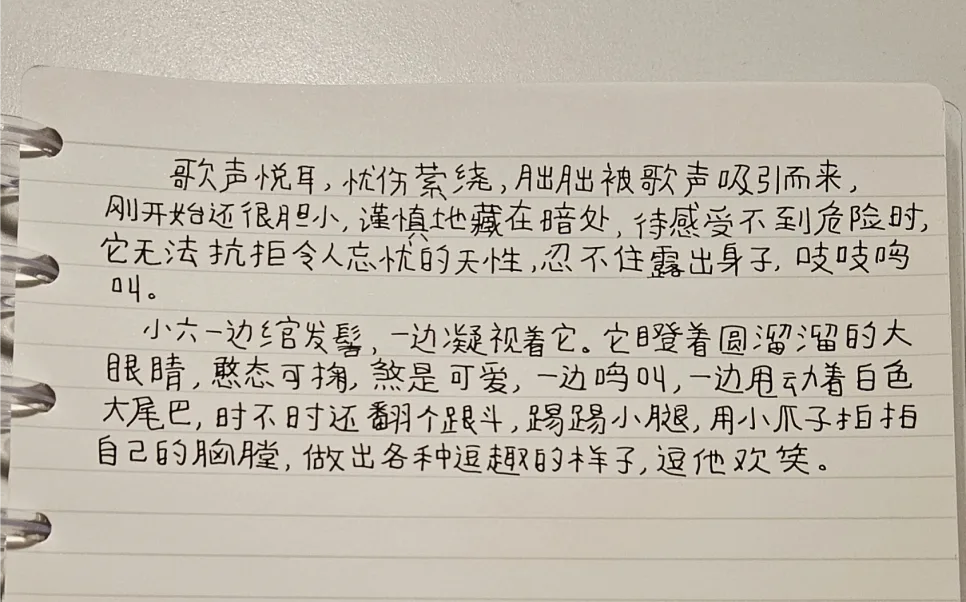 歌声悦耳，忧伤萦绕，朏朏被歌声吸引而来，
刚开始还很胆小，谨慎地藏在暗处，待感受不到危险时，
它无法抗拒令人忘忧的天性，忍不住露出身子，吱吱鸣
叫。
小六一边绾发髻，一边凝视着它。它瞪着圆溜溜的大
眼睛，憨态可掬，煞是可爱，一边鸣叫，一边甩动着白色
大尾巴，时不时还翻个跟斗，踢踢小腿，用小爪子拍拍
自己的胸膛，做出各种逗趣的样子，逗他欢笑。